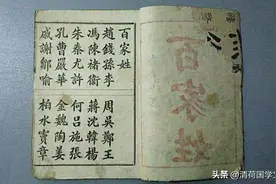 百家姓
百家姓
趙錢孫李 周吳鄭王
馮陳褚衛 蔣沈韓楊
朱秦尤許 何呂施張
孔曹嚴華 金魏陶姜
戚謝鄒喻 柏水竇章
头条 @清荷国学